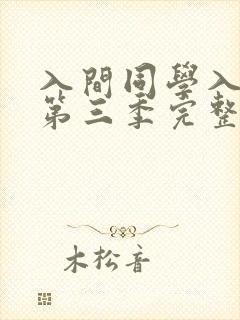 入間同學入
第三季完整
木松音